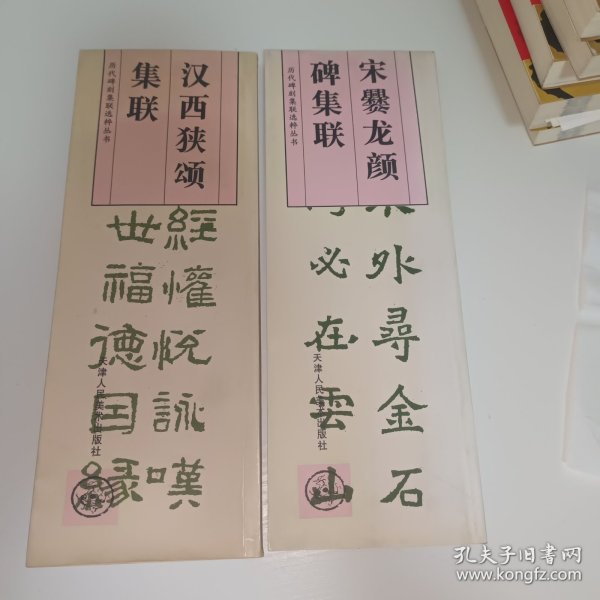 汉西狭颂
集联
历代碑刻集联选粹丛书
經懽悦詠嘆
世福德国緣
天津人民美术出版社
宋爨龙颜
碑集联
历代碑刻集联选粹丛书
外尋金石
必在雲山
天津人民美术出版社
孔夫子旧书网
www.kongfz.com